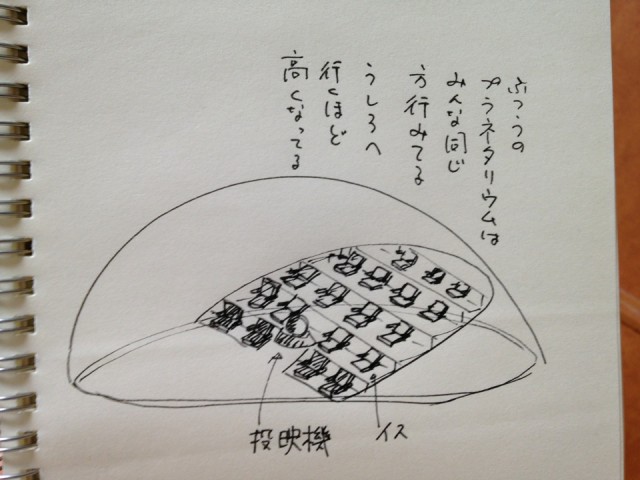 ふつうの
プラネタリウムは
みんな同じ
方行みてる
うしろへ
行くほど
高くなってる
投映機
イス